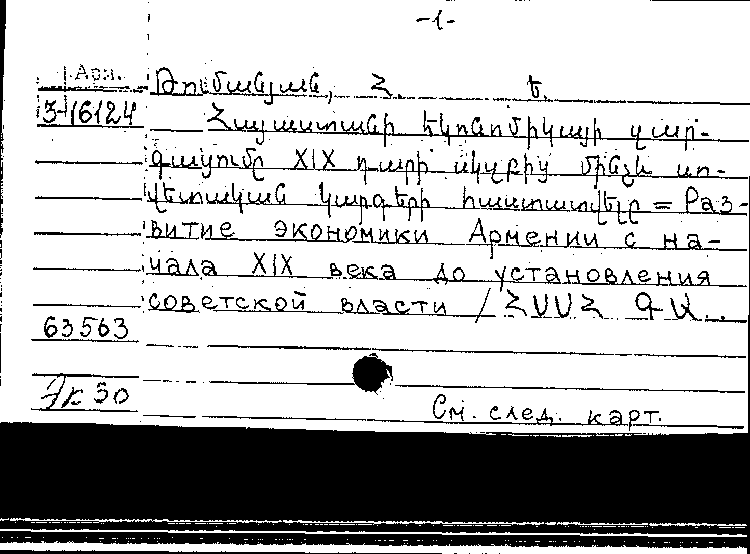 -1-
Арм. Թումանյան, Հ. Ե.
3-16124 Հայաստանի էկոնոմիկայի զար-
գացումը XIX դարի սկզբից մինչև սո-
վետական կարգերի հաստատվելը = Раз-
витие экономики Армении с на-
чала XIX века до установления
советской власти / ՀՍՍՀ ԳԱ..
63563
Эк 30
См. след. карт.